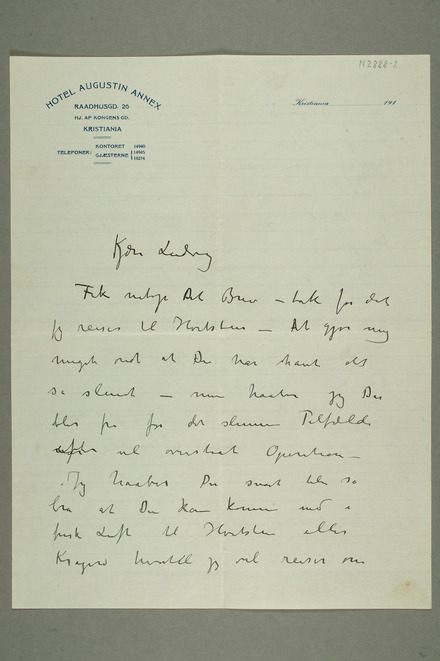 N 2888-2
HOTEL AUGUSTIN ANNEX
RAADHUSGD. 26
HJ. AF KONGENS GD.
KRISTIANIA
TELEFONER: KONTORET 14940
GJÆSTERNE 14945
Kristiania 191
Kjære Ludvig
Fik netop dit Brev – tak for det
jeg reiser til Hvitsten – Det gjør mig
meget ondt at Du har havt det
så slemt – men haaber jeg Du
blir fri for det slemme Tilfælde
efter vel overstaat Operation –
Jeg haaber Du snart blir så
bra at Du kan komme ud i
frisk Luft til Hvitsten eller
Kragerø hvortil jeg vel reiser om